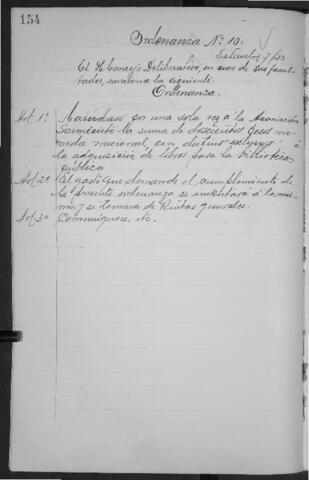 154
Ordenanza Nº 10.
Setiembre 7/33
El H. Concejo Deliberativo, en uso de sus facul-
tades, sanciona la siguiente:
Ordenanza.
Art. 1º Acuérdase por una sola vez á la Asociación
Sarmiento la suma de doscientos pesos mo-
neda nacional, con destino exclusivo á
la adquisición de libros para la biblioteca
pública
Art. 2º El gasto que demande el cumplimiento de
la presente ordenanza se imputará á la mis-
ma y se tomará de Rentas generales.
Art. 3º Comuníquese, etc.